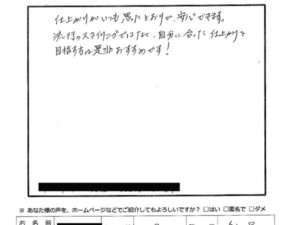 仕上がりがいつも思ったとおりで、安心できます。
流行のスタイリングだけでなく、自分に合った仕上がりを
目指す方は是非おすすめです!
※ あなた様の声を、ホームページなどでご紹介してもよろしいですか? □はい □匿名で □ダメ
お名前